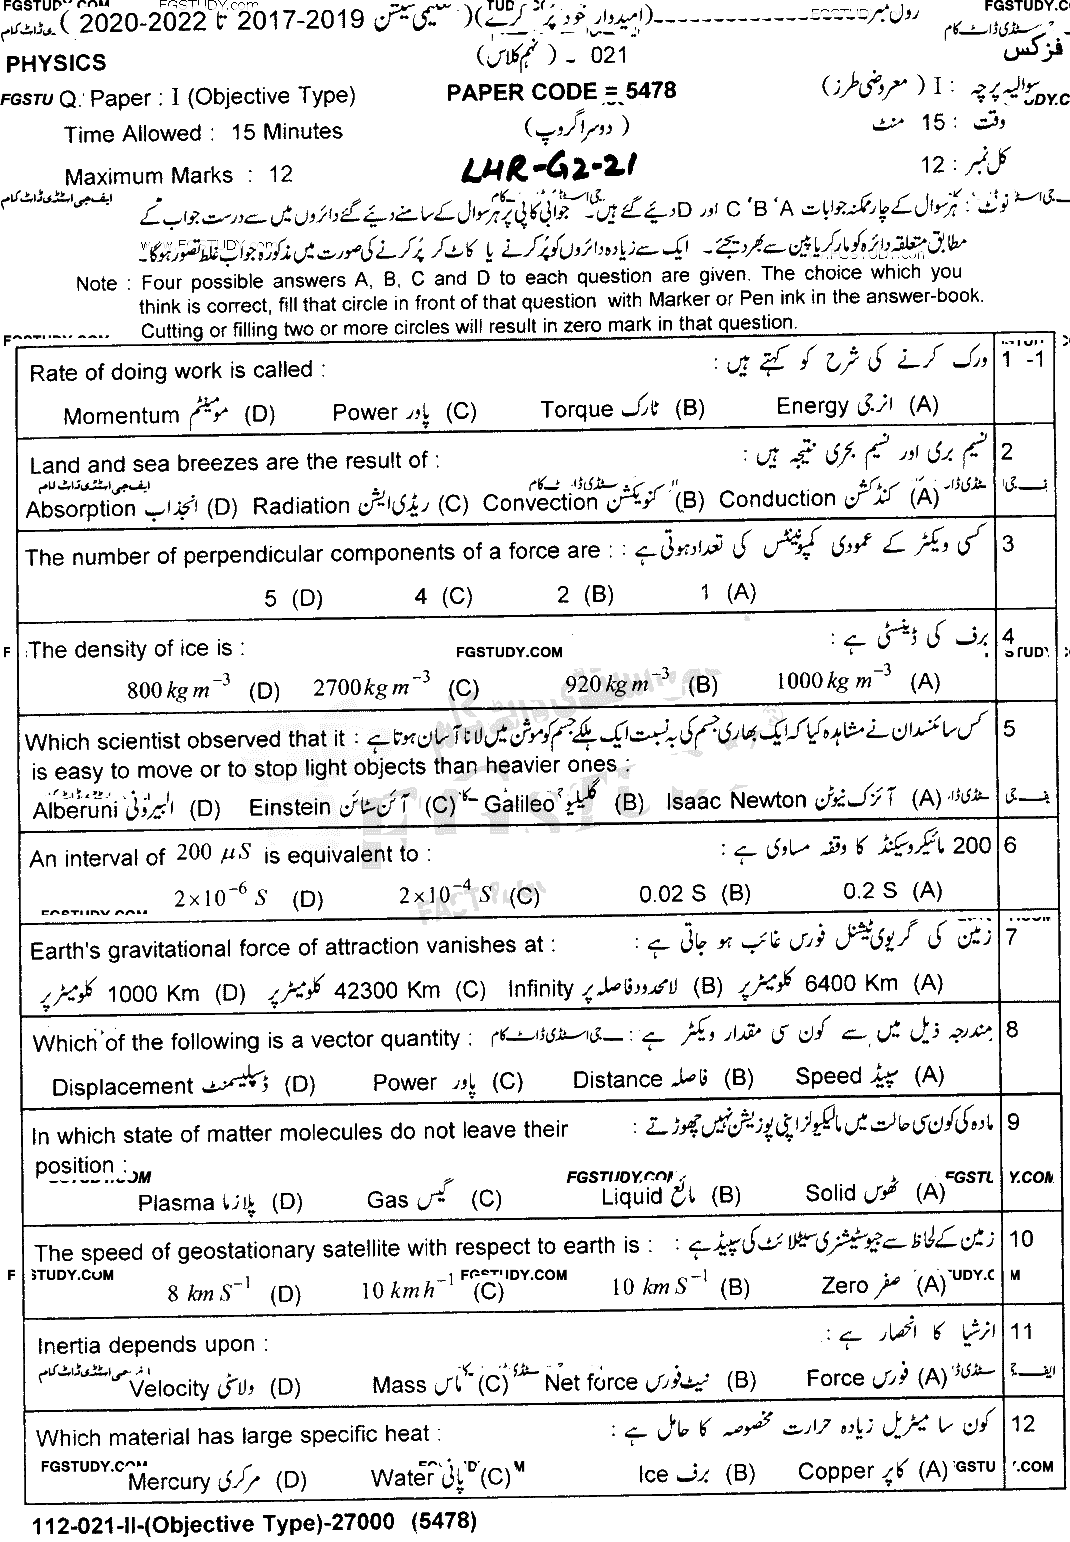 رول نمبر (امیدوار خود پُر کرے) (تعلیمی سیشن 2017-2019 تا 2020-2022)
فزکس 021 - (نہم کلاس) PHYSICS
سوالیہ پرچہ : I (معروضی طرز) PAPER CODE = 5478 Q. Paper : I (Objective Type)
وقت : 15 منٹ (دوسرا گروپ) Time Allowed : 15 Minutes
کل نمبر : 12 LHR-G2-21 Maximum Marks : 12
نوٹ : ہر سوال کے چار ممکنہ جوابات A ، B ، C اور D دیئے گئے ہیں۔ جوابی کاپی پر ہر سوال کے سامنے دیئے گئے دائروں میں سے درست جواب کے
مطابق متعلقہ دائرہ کو مارکر یا پین سے بھر دیجئے۔ ایک سے زیادہ دائروں کو پُر کرنے یا کاٹ کر پُر کرنے کی صورت میں مذکورہ جواب غلط تصور ہوگا۔
Note : Four possible answers A, B, C and D to each question are given. The choice which you
think is correct, fill that circle in front of that question with Marker or Pen ink in the answer-book.
Cutting or filling two or more circles will result in zero mark in that question.
1-1 ورک کرنے کی شرح کو کہتے ہیں :
Rate of doing work is called :
(A) انرجی Energy (B) ٹارک Torque (C) پاور Power (D) مومینٹم Momentum
2 نسیم بری اور نسیم بحری نتیجہ ہیں :
Land and sea breezes are the result of :
(A) کنڈکشن Conduction (B) کنویکشن Convection (C) ریڈی ایشن Radiation (D) انجذاب Absorption
3 کسی ویکٹر کے عمودی کمپوننٹس کی تعداد ہوتی ہے :
The number of perpendicular components of a force are :
(A) 1 (B) 2 (C) 4 (D) 5
4 برف کی ڈینسٹی ہے :
The density of ice is :
FGSTUDY.COM
(A) 1000 kg m⁻³ (B) 920 kg m⁻³ (C) 2700 kg m⁻³ (D) 800 kg m⁻³
5 کس سائنسدان نے مشاہدہ کیا کہ ایک بھاری جسم کی بہ نسبت ایک ہلکے جسم کو موشن میں لانا آسان ہوتا ہے :
Which scientist observed that it
is easy to move or to stop light objects than heavier ones :
(A) آئزک نیوٹن Isaac Newton (B) گلیلیو Galileo (C) آئن سٹائن Einstein (D) البیرونی Alberuni
6 200 مائیکروسیکنڈ کا وقفہ مساوی ہے :
An interval of 200 μS is equivalent to :
(A) 0.2 S (B) 0.02 S (C) 2×10⁻⁴ S (D) 2×10⁻⁶ S
7 زمین کی گریوی ٹیشنل فورس غائب ہو جاتی ہے :
Earth's gravitational force of attraction vanishes at :
(A) 6400 Km کلومیٹر پر (B) لامحدود فاصلہ پر Infinity (C) 42300 Km کلومیٹر پر (D) 1000 Km کلومیٹر پر
8 مندرجہ ذیل میں سے کون سی مقدار ویکٹر ہے :
Which of the following is a vector quantity :
(A) سپیڈ Speed (B) فاصلہ Distance (C) پاور Power (D) ڈسپلیسمنٹ Displacement
9 مادہ کی کون سی حالت میں مالیکیولز اپنی پوزیشن نہیں چھوڑتے :
In which state of matter molecules do not leave their
position :
(A) ٹھوس Solid (B) مائع Liquid (C) گیس Gas (D) پلازما Plasma
10 زمین کے لحاظ سے جیوسٹیشنری سیٹلائٹ کی سپیڈ ہے :
The speed of geostationary satellite with respect to earth is :
(A) صفر Zero (B) 10 km S⁻¹ (C) 10 km h⁻¹ (D) 8 km S⁻¹
11 انرشیا کا انحصار ہے :
Inertia depends upon :
(A) فورس Force (B) نیٹ فورس Net force (C) ماس Mass (D) ولاسٹی Velocity
12 کون سا میٹریل زیادہ حرارت مخصوصہ کا حامل ہے :
Which material has large specific heat :
(A) کاپر Copper (B) برف Ice (C) پانی Water (D) مرکری Mercury
112-021-II-(Objective Type)-27000 (5478)